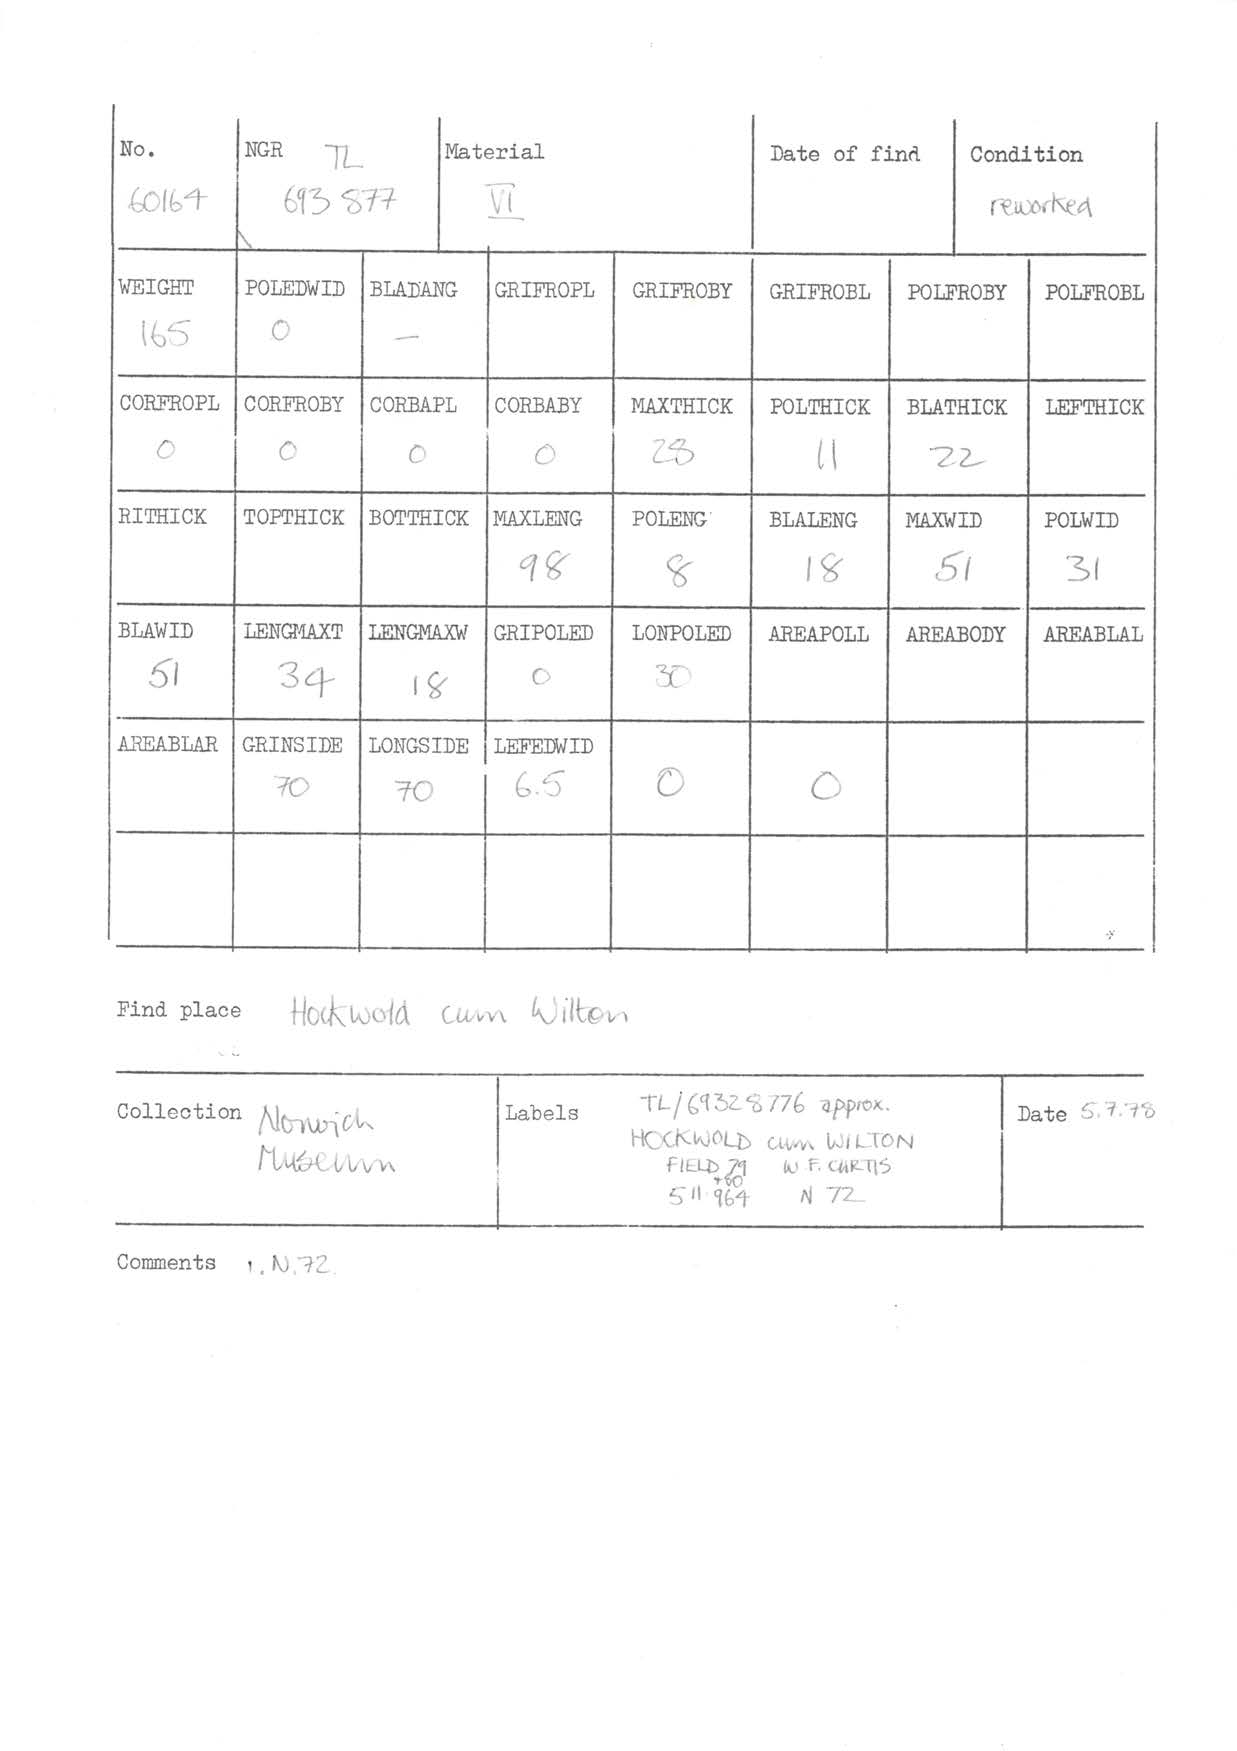 No. NGR TL Material Date of find Condition
60164 693 877 VI reworked
WEIGHT POLEDWID BLADANG GRIFROPL GRIFROBY GRIFROBL POLFROBY POLFROBL
165 0 —
CORFROPL CORFROBY CORBAPL CORBABY MAXTHICK POLTHICK BLATHICK LEFTHICK
0 0 0 0 28 11 22
RITHICK TOPTHICK BOTTHICK MAXLENG POLENG BLALENG MAXWID POLWID
98 8 18 51 31
BLAWID LENGMAXT LENGMAXW GRIPOLED LONPOLED AREAPOLL AREABODY AREABLAL
51 34 18 0 30
AREABLAR GRINSIDE LONGSIDE LEFEDWID
70 70 6.5 0 0
Find place Hockwold cum Wilton
Collection Norwich Museum
Labels TL/69328776 approx.
HOCKWOLD cum WILTON
FIELD 79 W F. CURTIS
+80
511.964 N 72
Date 5.7.78
Comments 1.N.72.